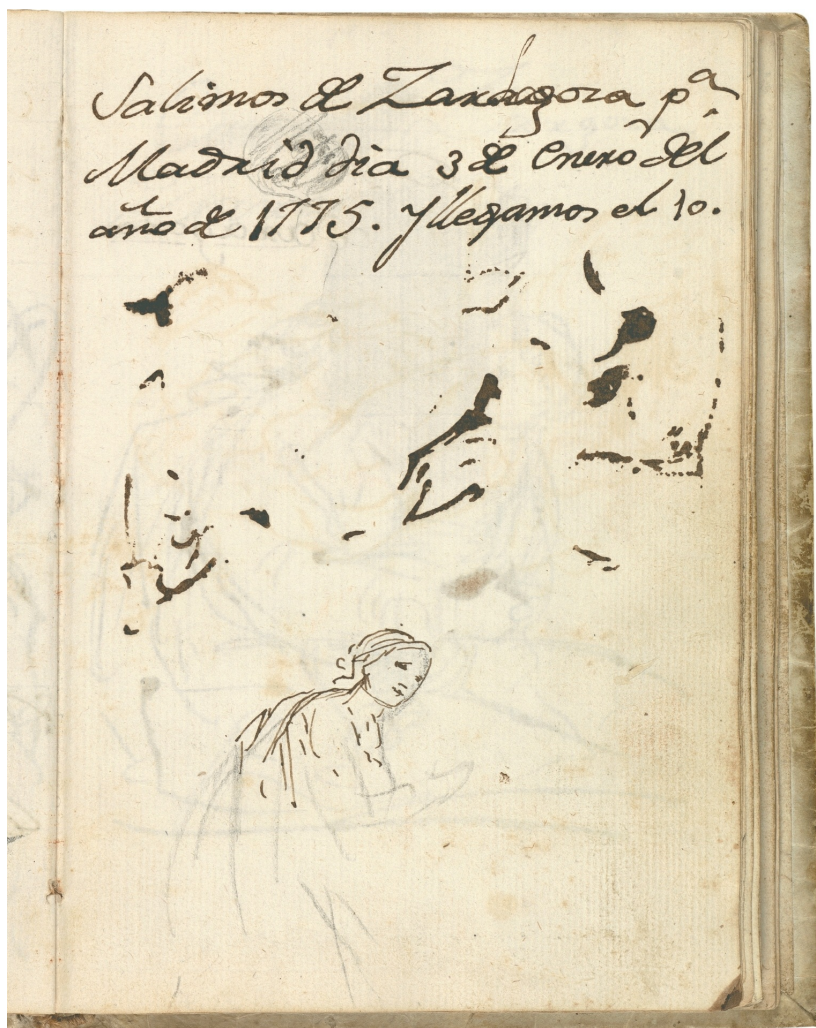 Salimos de Zaragoza pª
Madrid dia 3 de Enero del
año de 1775. Y llegamos el 10.